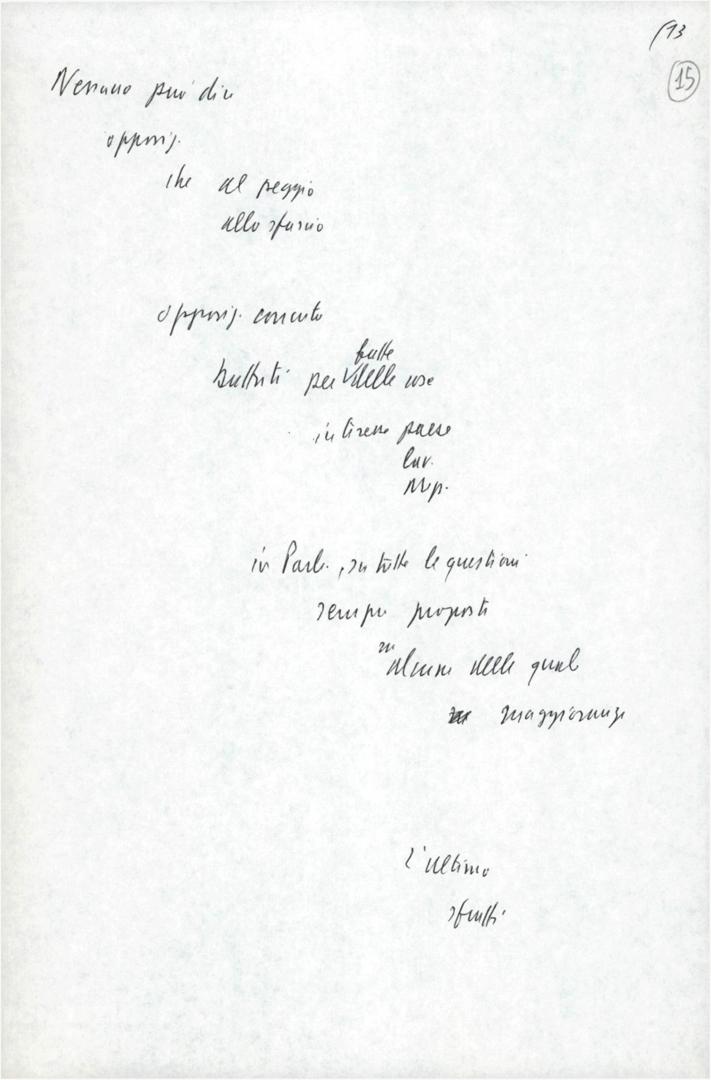 /13
15
Nessuno può dire
opposiz.
che al peggio
allo sfascio
opposiz. concreta
battuti per delle cose
fatte
interesse paese
lav.
in Parl., su tutte le questioni
sempre proposte
su
alcune delle quali
maggioranze
L'ultimo
sfratti